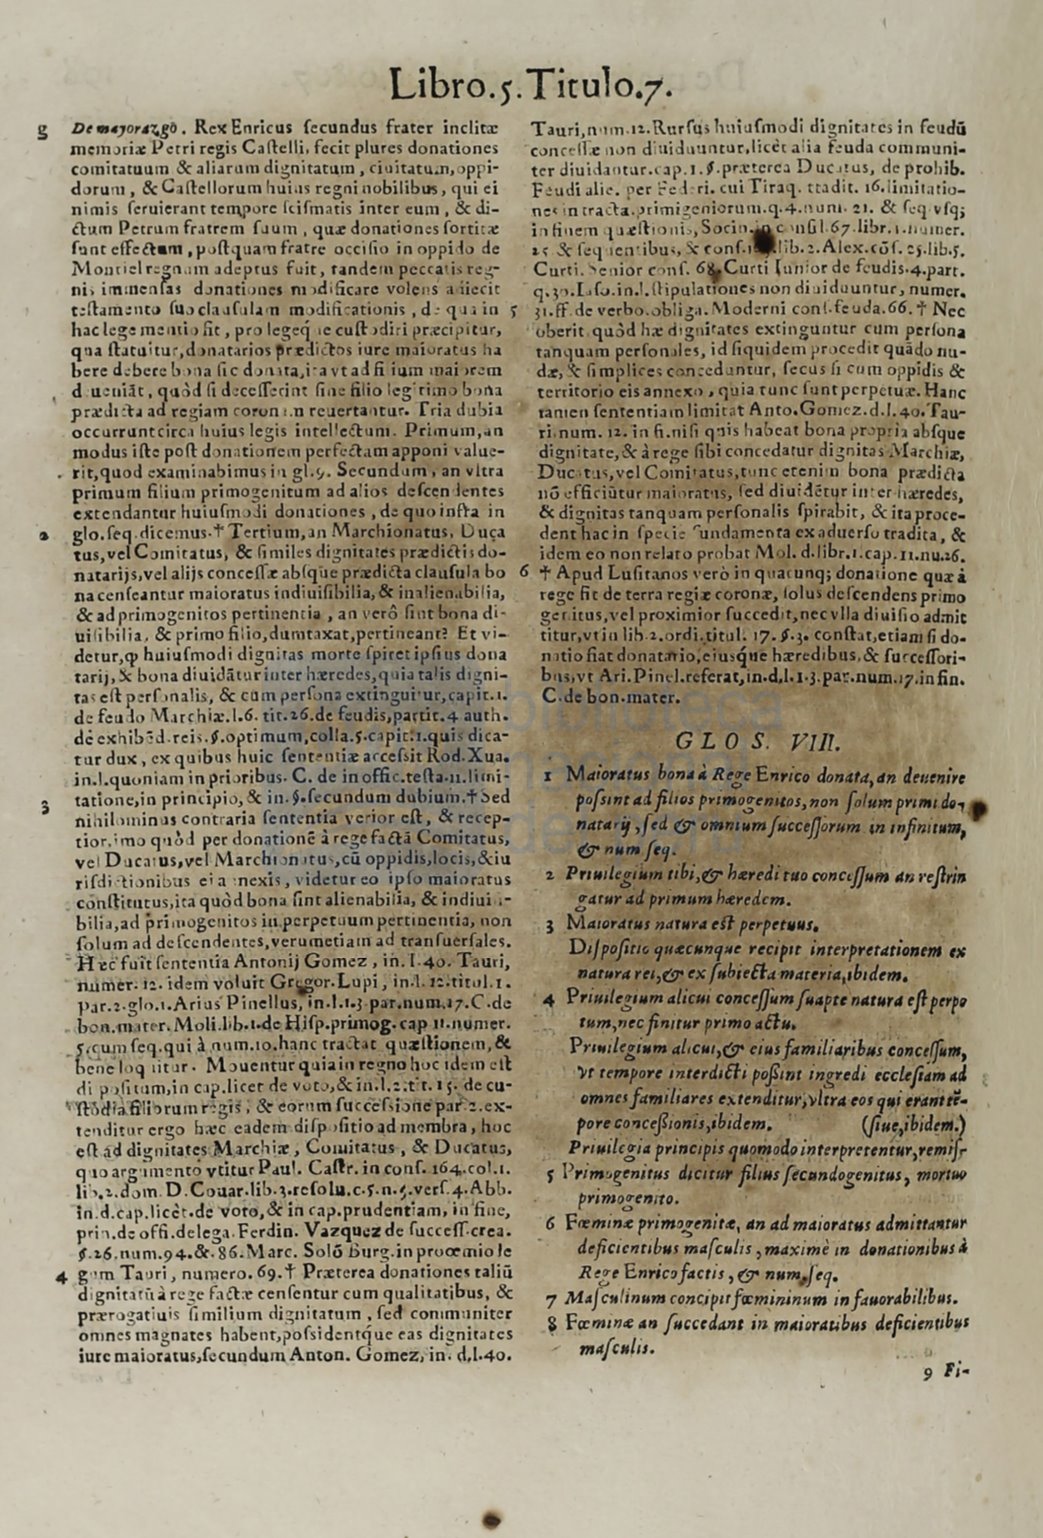 Libro.5.Titulo.7.
g De mayorazgo. Rex Enricus ſecundus frater inclitæ
memoriæ Petri regis Caſtelli, fecit plures donationes
comitatuum & aliarum dignitatum, ciuitatum, oppi-
dorum, & Caſtellorum huius regni nobilibus, qui ei
nimis ſeruierant tempore ſciſmatis inter eum, & di-
ctum Petrum fratrem ſuum, quæ donationes ſortitæ
ſunt effectum, poſtquam fratre occiſio in oppido de
Montiel regnum adeptus fuit, tandem peccatis reg-
nis immenſas donationes modificare volens adiecit
teſtamento ſuo clauſulam modificationis, de qua in
hac lege mentio fit, pro legeque cuſtodiri præcipitur,
qua ſtatuitur, donatarios prædictos iure maioratus ha
bere debere bona ſic donata, ita vt ad filium maiorem
d ueniāt, quòd ſi deceſſerint ſine filio legitimo bona
prædicta ad regiam coronam reuertantur. Tria dubia
occurrunt circa huius legis intellectum. Primum, an
modus iſte poſt donationem perfectam apponi value-
rit, quod examinabimus in gl.9. Secundum, an vltra
primum filium primogenitum ad alios deſcendentes
extendantur huiuſmodi donationes, de quo infra in
2 glo.ſeq.dicemus.† Tertium, an Marchionatus, Duca
tus, vel Comitatus, & ſimiles dignitates prædictis do-
natarijs, vel alijs conceſſæ abſque prædicta clauſula bo
na cenſeantur maioratus indiuiſibilia, & inalienabilia,
& ad primogenitos pertinentia, an verò ſint bona di-
uiſibilia, & primo filio, dumtaxat, pertineant? Et vi-
detur, ꝙ huiuſmodi dignitas morte ſpiret ipſius dona
tarij, & bona diuidātur inter hæredes, quia talis digni-
tas eſt perſonalis, & cum perſona extinguitur, capit.1.
de feudo Marchiæ.l.6. tit.26.de feudis, partit.4 auth.
de exhibēd.reis.§.optimum, colla.5.capit.1.quis dica-
tur dux, ex quibus huic ſententiæ acceſsit Rod.Xua.
in.l.quoniam in prioribus. C. de inoffic.teſta.11.limi-
3 tatione, in principio, & in.§.ſecundum dubium.† Sed
nihilominus contraria ſententia verior eſt, & recep-
tior, imo quòd per donationē à rege factā Comitatus,
vel Ducatus, vel Marchionatus, cū oppidis, locis, & iu
riſdictionibus ei annexis, videtur eo ipſo maioratus
conſtitutus, ita quòd bona ſint alienabilia, & indiuiſi-
bilia, ad primogenitos in perpetuum pertinentia, non
ſolum ad deſcendentes, verumetiam ad tranſuerſales.
Hæc fuit ſententia Antonij Gomez, in.l.40. Tauri,
numer.12. idem voluit Gregor.Lupi, in.l.12.titul.1.
par.2.glo.1.Arius Pinellus, in.l.1.3.par.num.17.C.de
bon.mater. Moli.lib.1.de Hiſp.primog.cap 11.numer.
5.cum ſeq.qui à num.10.hanc tractat quæſtionem, &
bene loquitur. Mouentur quia in regno hoc idem eſt
diſpoſitum, in cap.licet de voto, & in.l.2.tit.15. de cu-
ſtodia filiorum regis, & eorum ſucceſsione par.2.ex-
tenditur ergo hæc eadem diſpoſitio ad membra, hoc
eſt ad dignitates Marchiæ, Comitatus, & Ducatus,
quo argumento vtitur Paul. Caſtr. in conſ. 164.col.1.
lib.2.dom. D.Couar.lib.3.reſolu.c.5.n.5.verſ.4.Abb.
in.d.cap.licèt.de voto, & in cap.prudentiam, in fine,
prin.de offi.delega.Ferdin. Vazquez de ſucceſſ.crea.
§.26.num.94.&.86.Marc. Solō Burg.in proœmio le
4 gum Tauri, numero.69.† Præterea donationes taliū
dignitatū à rege factæ cenſentur cum qualitatibus, &
prærogatiuis ſimilium dignitatum, ſed communiter
omnes magnates habent, poſsidentque eas dignitates
iure maioratus, ſecundum Anton. Gomez, in. d.l.40.
Tauri, num.12. Rurſus huiuſmodi dignitates in feudū
conceſſæ non diuiduuntur, licèt alia feuda communi-
ter diuidantur.cap.1.§.præterea Ducatus, de prohib.
Feudi alie. per Federi. cui Tiraq. tradit. 16.limitatio-
nes in tracta.primigeniorum.q.4.num. 21. & ſeq vſq;
in finem quæſtionis, Socin. conſil.67.libr.1.numer.
25 & ſequentibus, & conſ. lib.2.Alex.cōſ.25.lib.5.
Curti. Senior conſ. 68. Curti Iunior de feudis.4.part.
q.30.Iaſo.in.l.ſtipulationes non diuiduuntur, numer.
5 31.ff.de verbo.obliga. Moderni conſ.feuda.66.† Nec
oberit quòd hæ dignitates extinguntur cum perſona
tanquam perſonales, id ſiquidem procedit quādo nu-
dæ, & ſimplices conceduntur, ſecus ſi cum oppidis &
territorio eis annexo, quia tunc ſunt perpetuæ. Hanc
tamen ſententiam limitat Anto.Gomez.d.l.40.Tau-
ri.num. 12. in fi.niſi quis habeat bona propria abſque
dignitate, & à rege ſibi concedatur dignitas Marchiæ,
Ducatus, vel Comitatus, tunc etenim bona prædicta
nō efficiūtur maioratus, ſed diuidētur inter hæredes,
& dignitas tanquam perſonalis ſpirabit, & ita proce-
dent hac in ſpecie fundamenta ex aduerſo tradita, &
idem eo non relato probat Mol. d.libr.1.cap.11.nu.26.
6 † Apud Luſitanos verò in quacunq; donatione quæ à
rege fit de terra regiæ coronæ, ſolus deſcendens primo
genitus, vel proximior ſuccedit, nec vlla diuiſio admit
titur, vt in lib.2.ordi.titul. 17.§.3. conſtat, etiam ſi do-
natio fiat donatario, eiusque hæredibus, & ſucceſſori-
bus, vt Ari.Pinel.referat, in.d.l.1.3.par.num.17.in fin.
C.de bon.mater.
GLOS. VIII.
1 Maioratus bona à Rege Enrico donata, an deuenire
poſsint ad filios primogenitos, non ſolum primi do-
natarij, ſed & omnium ſucceſſorum in infinitum,
& num ſeq.
2 Priuilegium tibi, & hæredi tuo conceſſum an reſtrin
gatur ad primum hæredem.
3 Maioratus natura eſt perpetuus.
Diſpoſitio quæcunque recipit interpretationem ex
natura rei, & ex ſubiecta materia, ibidem.
4 Priuilegium alicui conceſſum ſuapte natura eſt perpe
tum, nec finitur primo actu.
Priuilegium alicui, & eius familiaribus conceſſum,
vt tempore interdicti poſsint ingredi eccleſiam ad
omnes familiares extenditur, vltra eos qui erant tē-
pore conceſsionis, ibidem. (ſiue, ibidem.)
Priuilegia principis quomodo interpretentur, remiſ-
5 Primogenitus dicitur filius ſecundogenitus, mortuo
primogenito.
6 Fœminæ primogenitæ, an ad maioratus admittantur
deficientibus maſculis, maximè in donationibus à
Rege Enrico factis, & num, ſeq.
7 Maſculinum concipit fœmininum in fauorabilibus.
8 Fœminæ an ſuccedant in maioratibus deficientibus
maſculis.
9 Fi-